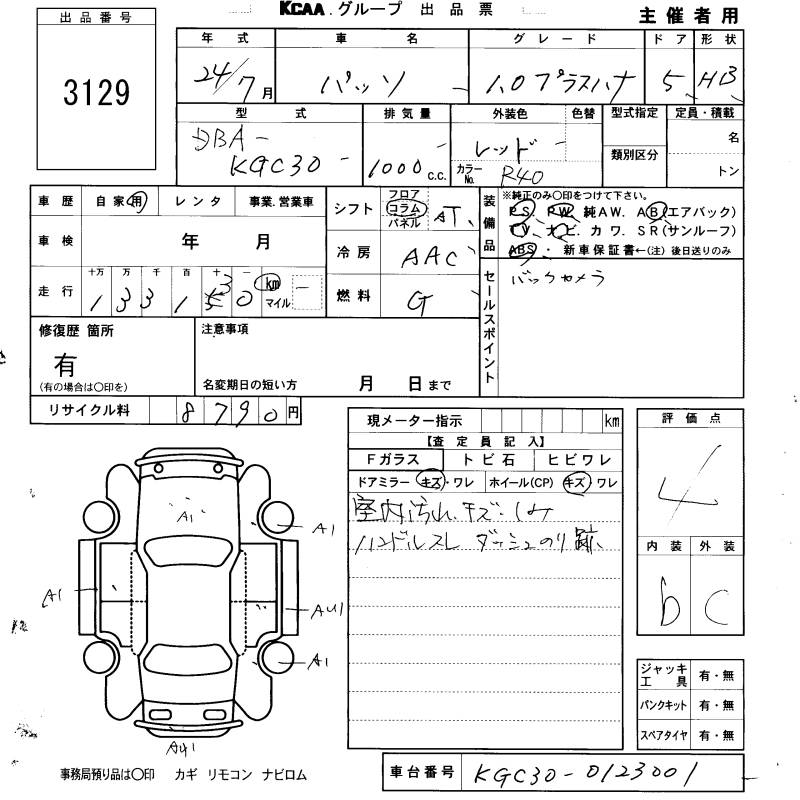 KCAA.グループ 出品票
主催者用
出品番号
3129
年式 車名 グレード ドア 形状
24/7月 パッソ 1.0プラスハナ 5 HB
型式 排気量 外装色 色替 型式指定 定員・積載
DBA- KGC30 1000c.c. レッド 名
カラーNo. R40 類別区分 トン
車歴 自家用 レンタ 事業.営業車
シフト フロア コラム パネル AT
装備品 ※純正のみ〇印をつけて下さい。
PS. PW. 純AW. AB(エアバック)
TV. ナビ. カワ. SR(サンルーフ)
ABS ・ 新車保証書←(注) 後日送りのみ
車検 年 月
冷房 AAC
セールスポイント
バックカメラ
走行 十万 万 千 百 十 一 km マイル
1 3 3 1 3 0
燃料 G
修復歴 箇所
有
(有の場合は〇印を)
注意事項
名変期日の短い方 月 日まで
リサイクル料 8790円
現メーター指示 km
【査定員記入】
Fガラス トビ石 ヒビワレ
ドアミラー キズ・ワレ ホイール(CP) キズ ワレ
室内汚れ.キズ.シミ
ハンドルスレ ダッシュのり跡
評価点
4
内装 外装
b c
A1
A1
A1
AU1
A1
AU1
ジャッキ 工具 有・無
パンクキット 有・無
スペアタイヤ 有・無
事務局預り品は〇印 カギ リモコン ナビロム
車台番号 KGC30-0123001